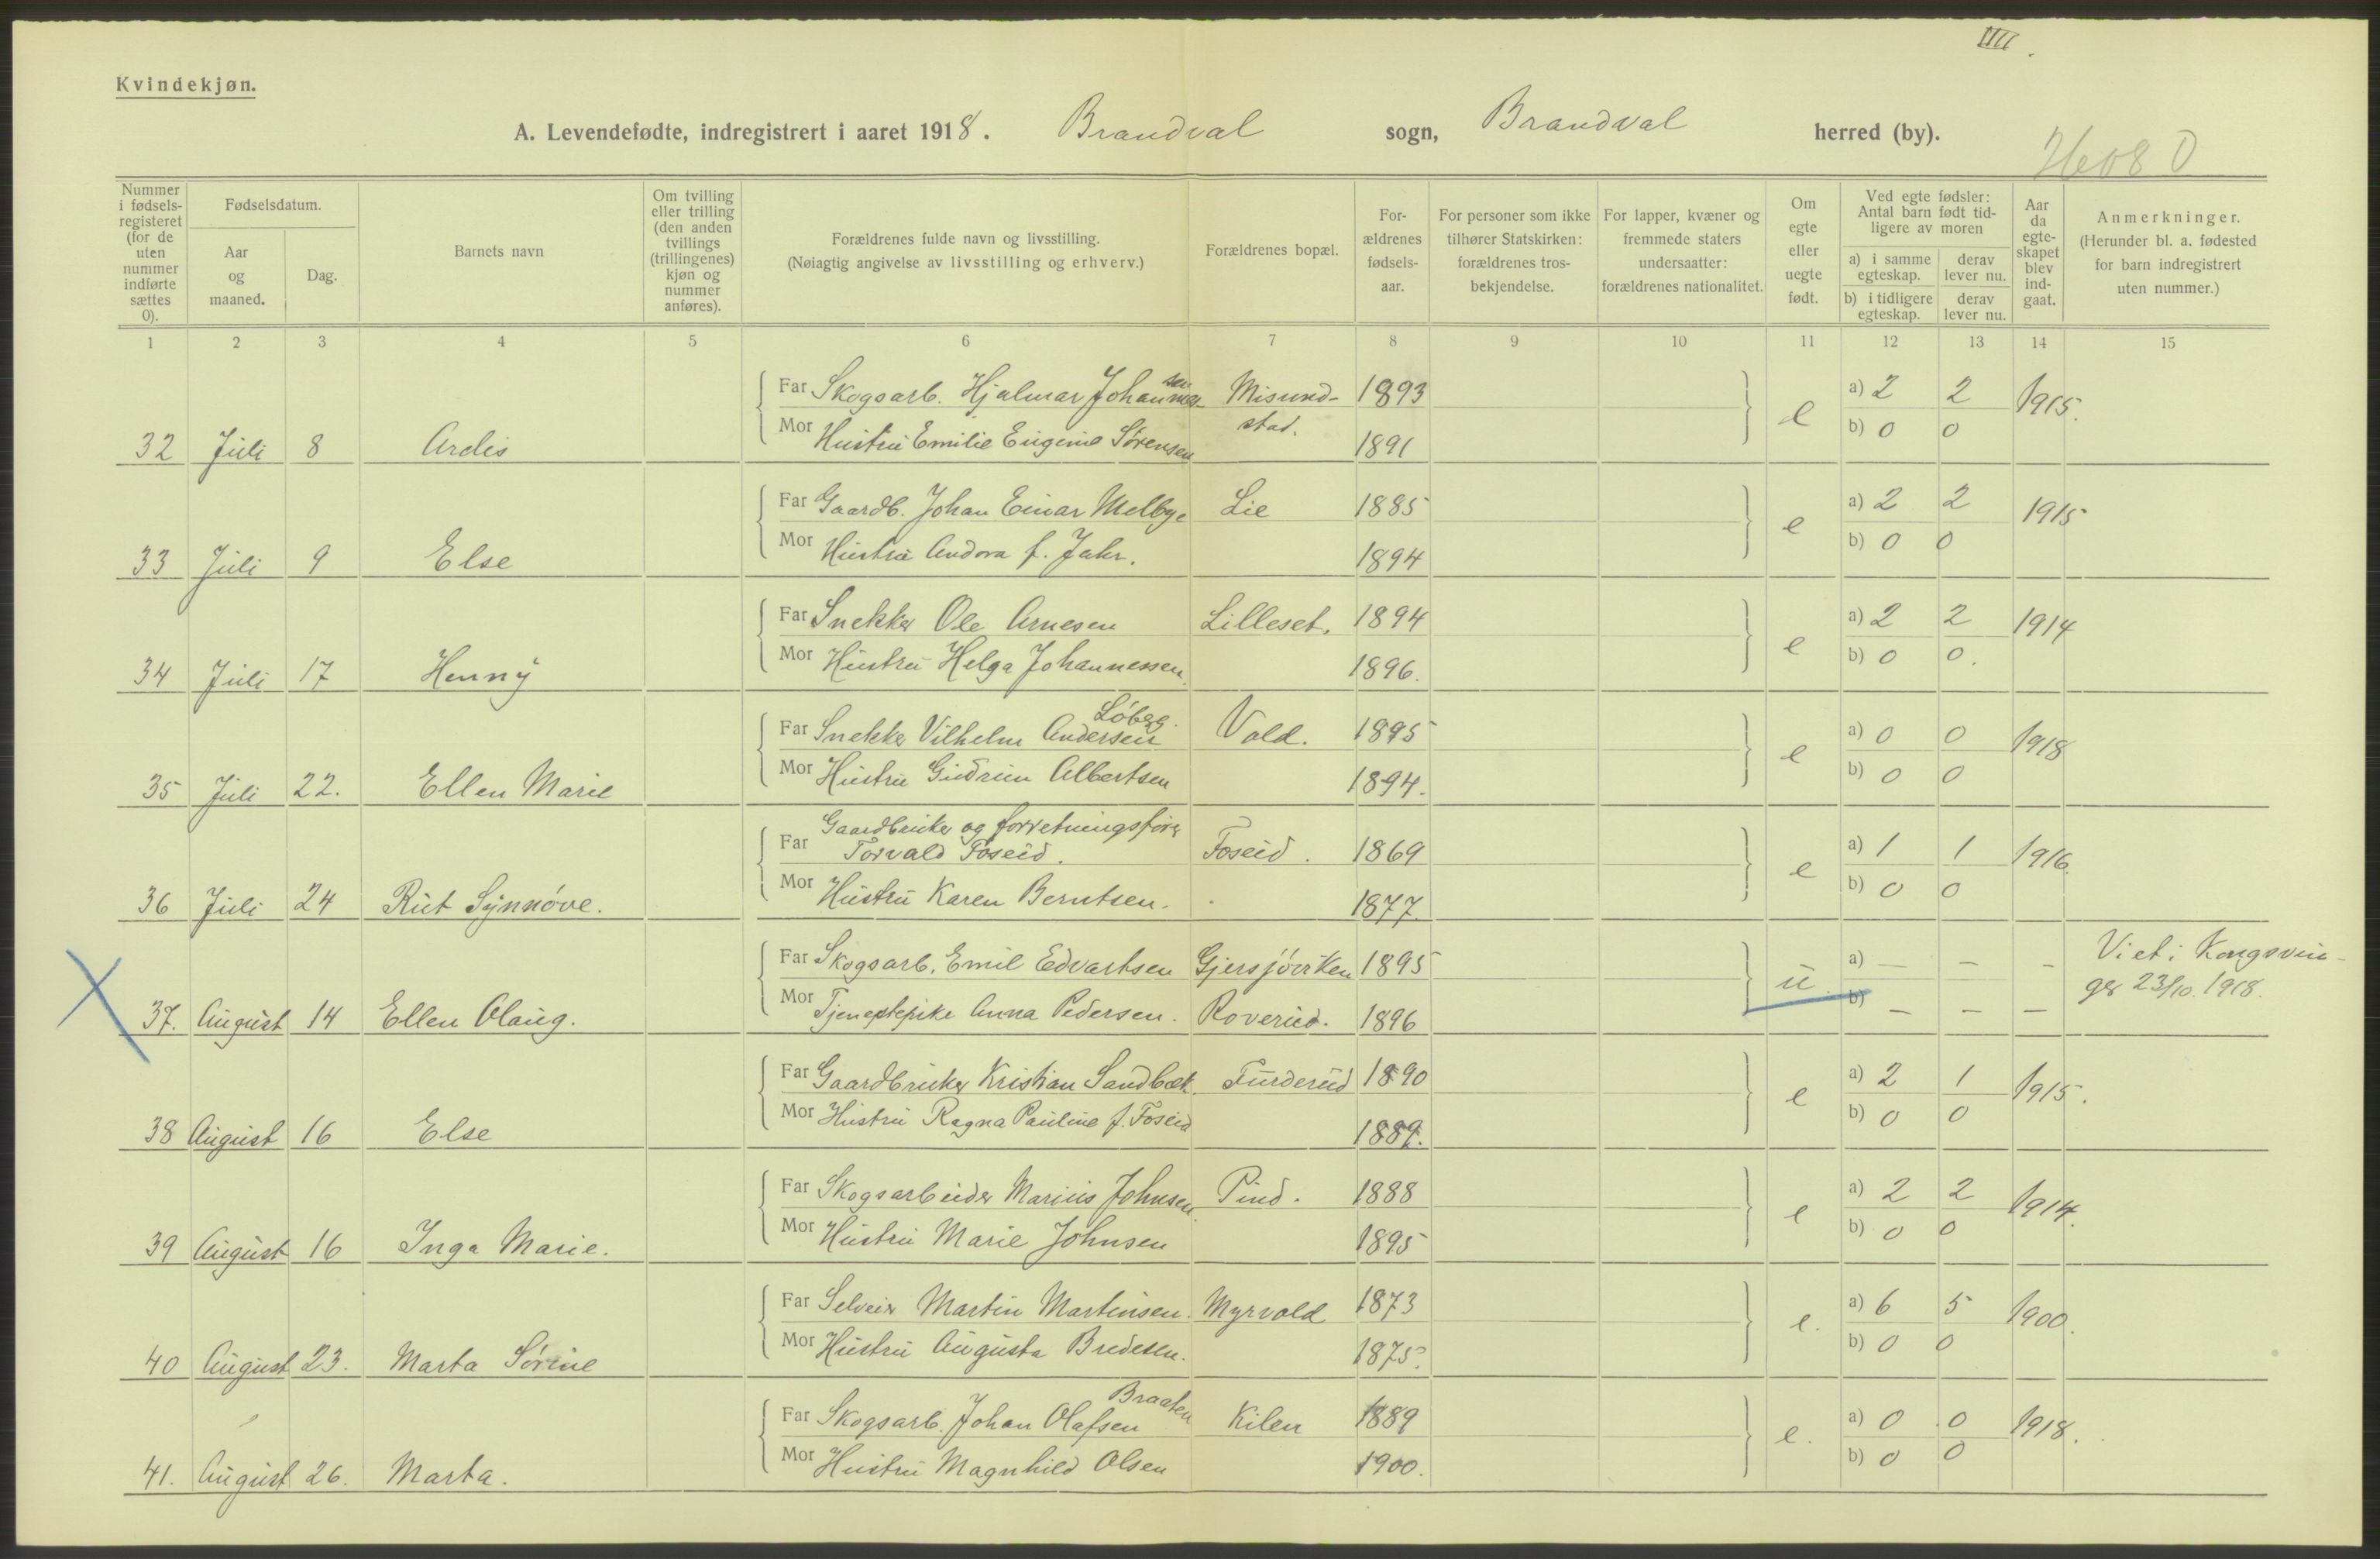 IIII.
Kvindekjøn.
A. Levendefødte, indregistrert i aaret 1918. Brandval sogn, Brandval herred (by).
Nummer i fødselsregisteret (for de uten nummer indførte sættes 0).
Fødselsdatum.
Aar og maaned.
Dag.
Barnets navn
Om tvilling eller trilling (den anden tvillings (trillingenes) kjøn og nummer anføres).
Forældrenes fulde navn og livsstilling.
(Nøiagtig angivelse av livsstilling og erhverv.)
Forældrenes bopæl.
Forældrenes fødselsaar.
For personer som ikke tilhører Statskirken: forældrenes trosbekjendelse.
For lapper, kvæner og fremmede staters undersaatter: forældrenes nationalitet.
Om egte eller uegte født.
Ved egte fødsler: Antal barn født tidligere av moren
a) i samme egteskap.
derav lever nu.
b) i tidligere egteskap.
derav lever nu.
Aar da egteskapet blev indgaat.
Anmerkninger.
(Herunder bl. a. fødested for barn indregistrert uten nummer.)
1 2 3 4 5 6 7 8 9 10 11 12 13 14 15
Far Skogsarb. Hjalmar Johannessen Misund- 1893 a) 2 2 1915.
Mor Hustru Emilie Eugenie Sørensen stad. 1891 e b) 0 0
32 Juli 8 Ardis
Far Gaardb. Johan Einar Melbye Lie 1885 a) 2 2 1915
Mor Hustru Andora f. Jahr. 1894 e b) 0 0
33 Juli 9 Else
Far Snekker Ole Arnesen Lilleset. 1894 a) 2 2 1914
Mor Hustru Helga Johannessen. 1896. e b) 0 0.
34 Juli 17 Henny
Løberg.
Far Snekker Vilhelm Andersen Vold. 1895 a) 0 0 1918
Mor Hustru Gudrun Albertsen 1894. e b) 0 0
35 Juli 22. Ellen Marie
Gaardbruker og forretningsfører
Far Torvald Foseid. Foseid. 1869 a) 1 1 1916.
Mor Hustru Karen Berntsen. 1877. e b) 0 0
36 Juli 24 Rut Synnøve.
Far Skogsarb. Emil Edvartsen Gjersjøviken 1895 u. a) — — - Viet i Kongsvin-
Mor Tjenestepike Anna Pedersen. Roverud. 1896 b) — — — ger 23/10. 1918.
37. August 14 Ellen Olaug.
Far Gaardbruker Kristian Sandbæk. Furderud 1890 a) 2 1 1915.
Mor Hustru Ragna Pauline f. Foseid 1889. e b) 0 0
38 August 16 Else
Far Skogsarbeider Marius Johnsen. Pind. 1888 a) 2 2 1914.
Mor Hustru Marie Johnsen 1895 e b) 0 0
39 August 16 Inga Marie.
Far Selveier Martin Martinsen. Myrvold 1873 a) 6 5 1900.
Mor Hustru Augusta Bredesen. 1875. e. b) 0 0
40 August 23. Marta Sørine
Braaten
Far Skogsarb. Johan Olafsen Kilen 1889 a) 0 0 1918.
Mor Hustru Magnhild Olsen 1900. e. b) 0 0
41. August 26. Marta.